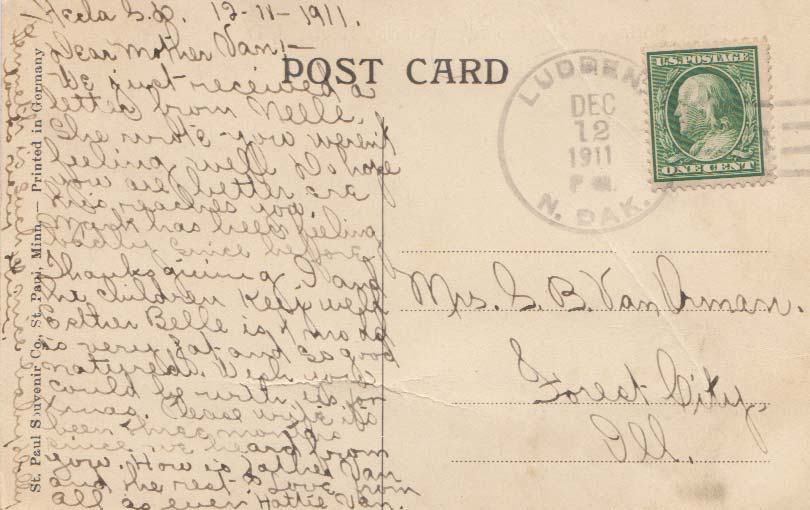 Hecla S.D. 12-11-1911.
Dear Mother Van:-
We just received a
letter from Nelle.
She wrote you weren't
feeling well. Do hope
you are better ere
this reaches you.
Mark has been feeling
badly since before
Thanksgiving. I and
the children keep well
Esther Belle is 7 mo old
is very fat and so good
natured. Wish you
could be with us for
Xmas. Please write its
been three months
since we heard from
you. How is Father Van
and the rest. Love from
all as ever Hattie Van.
POST CARD
LUDDEN
DEC
12
1911
P M.
N. DAK.
U.S. POSTAGE
ONE CENT
Mrs. S. B. Van Orman.
Forest City,
Ill.
St. Paul Souvenir Co., St. Paul, Minn. — Printed in Germany